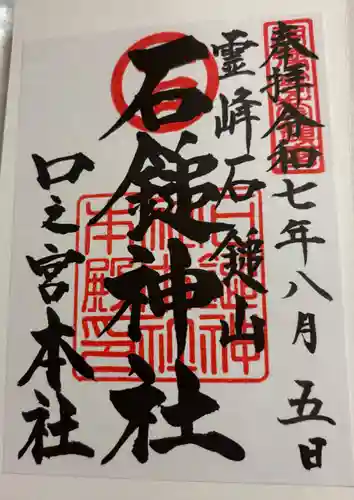 奉拝令和七年八月五日
霊峰石鎚山
石鎚神社
口之宮本社